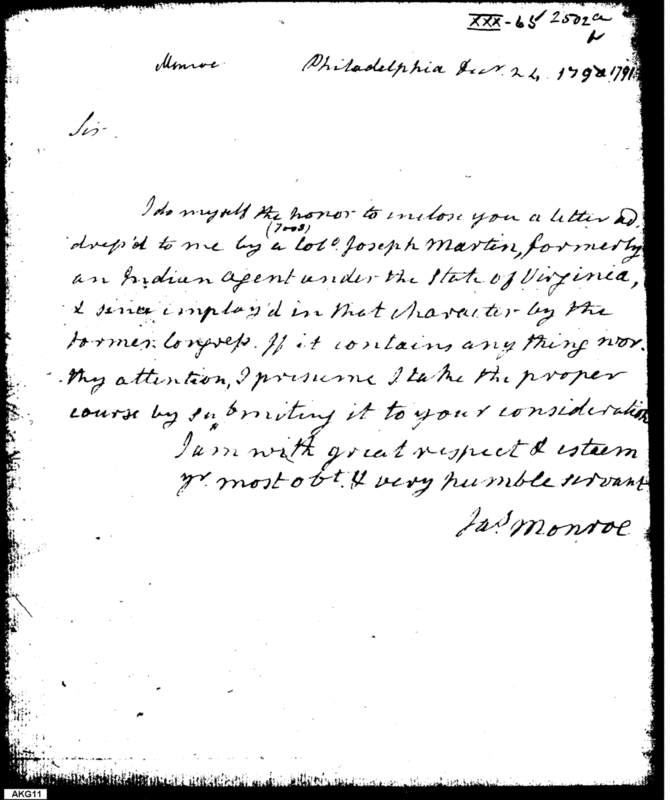 XXX-65 2502a
Monroe Philadelphia Decr. 24. 1791.
Sir
I do myself the honor to inclose you a letter ad-
dress'd to me by a Colo. Joseph Martin, formerly
an Indian agent under the State of Virginia,
& since employ'd in that character by the
former Congress. If it contains any thing wor-
thy attention, I presume I take the proper
course by submiting it to your consideration
I am with great respect & esteem
yr. most obt. & very humble servant
Jas. Monroe
AKG11